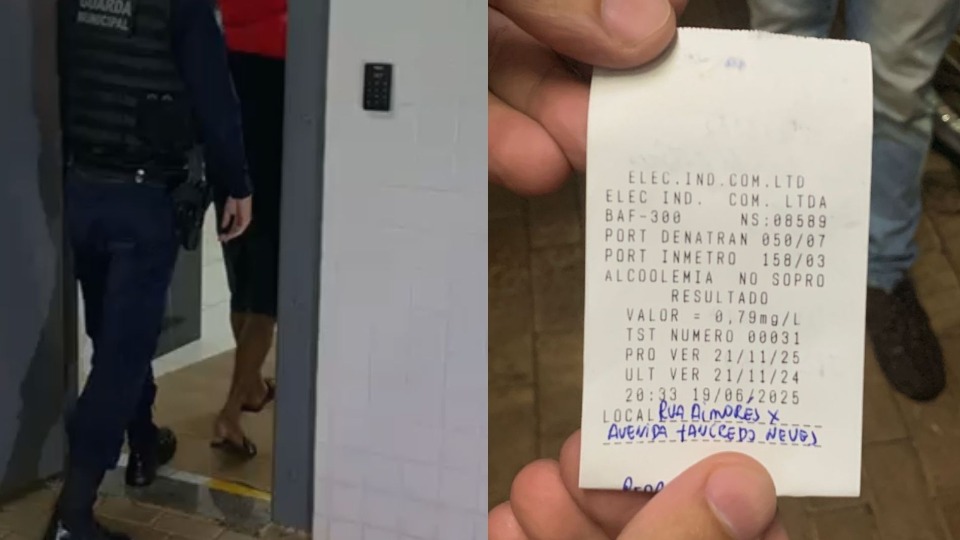 GUARDA
MUNICIPAL
ELEC.IND.COM.LTD
ELEC IND. COM. LTDA
BAF-300 NS:08589
PORT DENATRAN 050/07
PORT INMETRO 158/03
ALCOOLEMIA NO SOPRO
RESULTADO
VALOR = 0,79mg/L
TST NUMERO 00031
PRO VER 21/11/25
ULT VER 21/11/24
20:33 19/06/2025
LOCAL RUA AIMORÉS X
AVENIDA TANCREDO NEVES